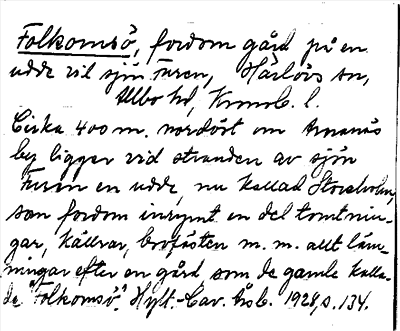 Folkomsö, fordom gård på en
udde vid sjön Furen, Härlövs sn,
Allbo hd, Kronob. l.
Cirka 400 m. nordöst om Arnanäs
by ligger vid stranden av sjön
Furen en udde, nu kallad Storeholm,
som fordom inrymt en del tomtnin-
gar, källrar, brofästen m. m. allt läm-
ningar efter en gård som de gamle kalla-
de "Folkomsö". Hylt.-Cav. årsb. 1928, s. 134.